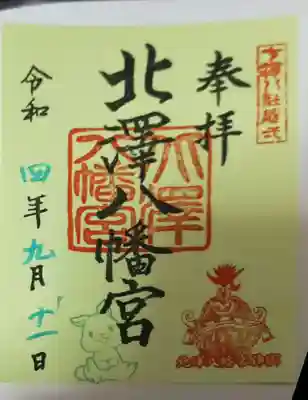 奉拝
北澤八幡宮
北澤八幡宮
令和四年九月十一日